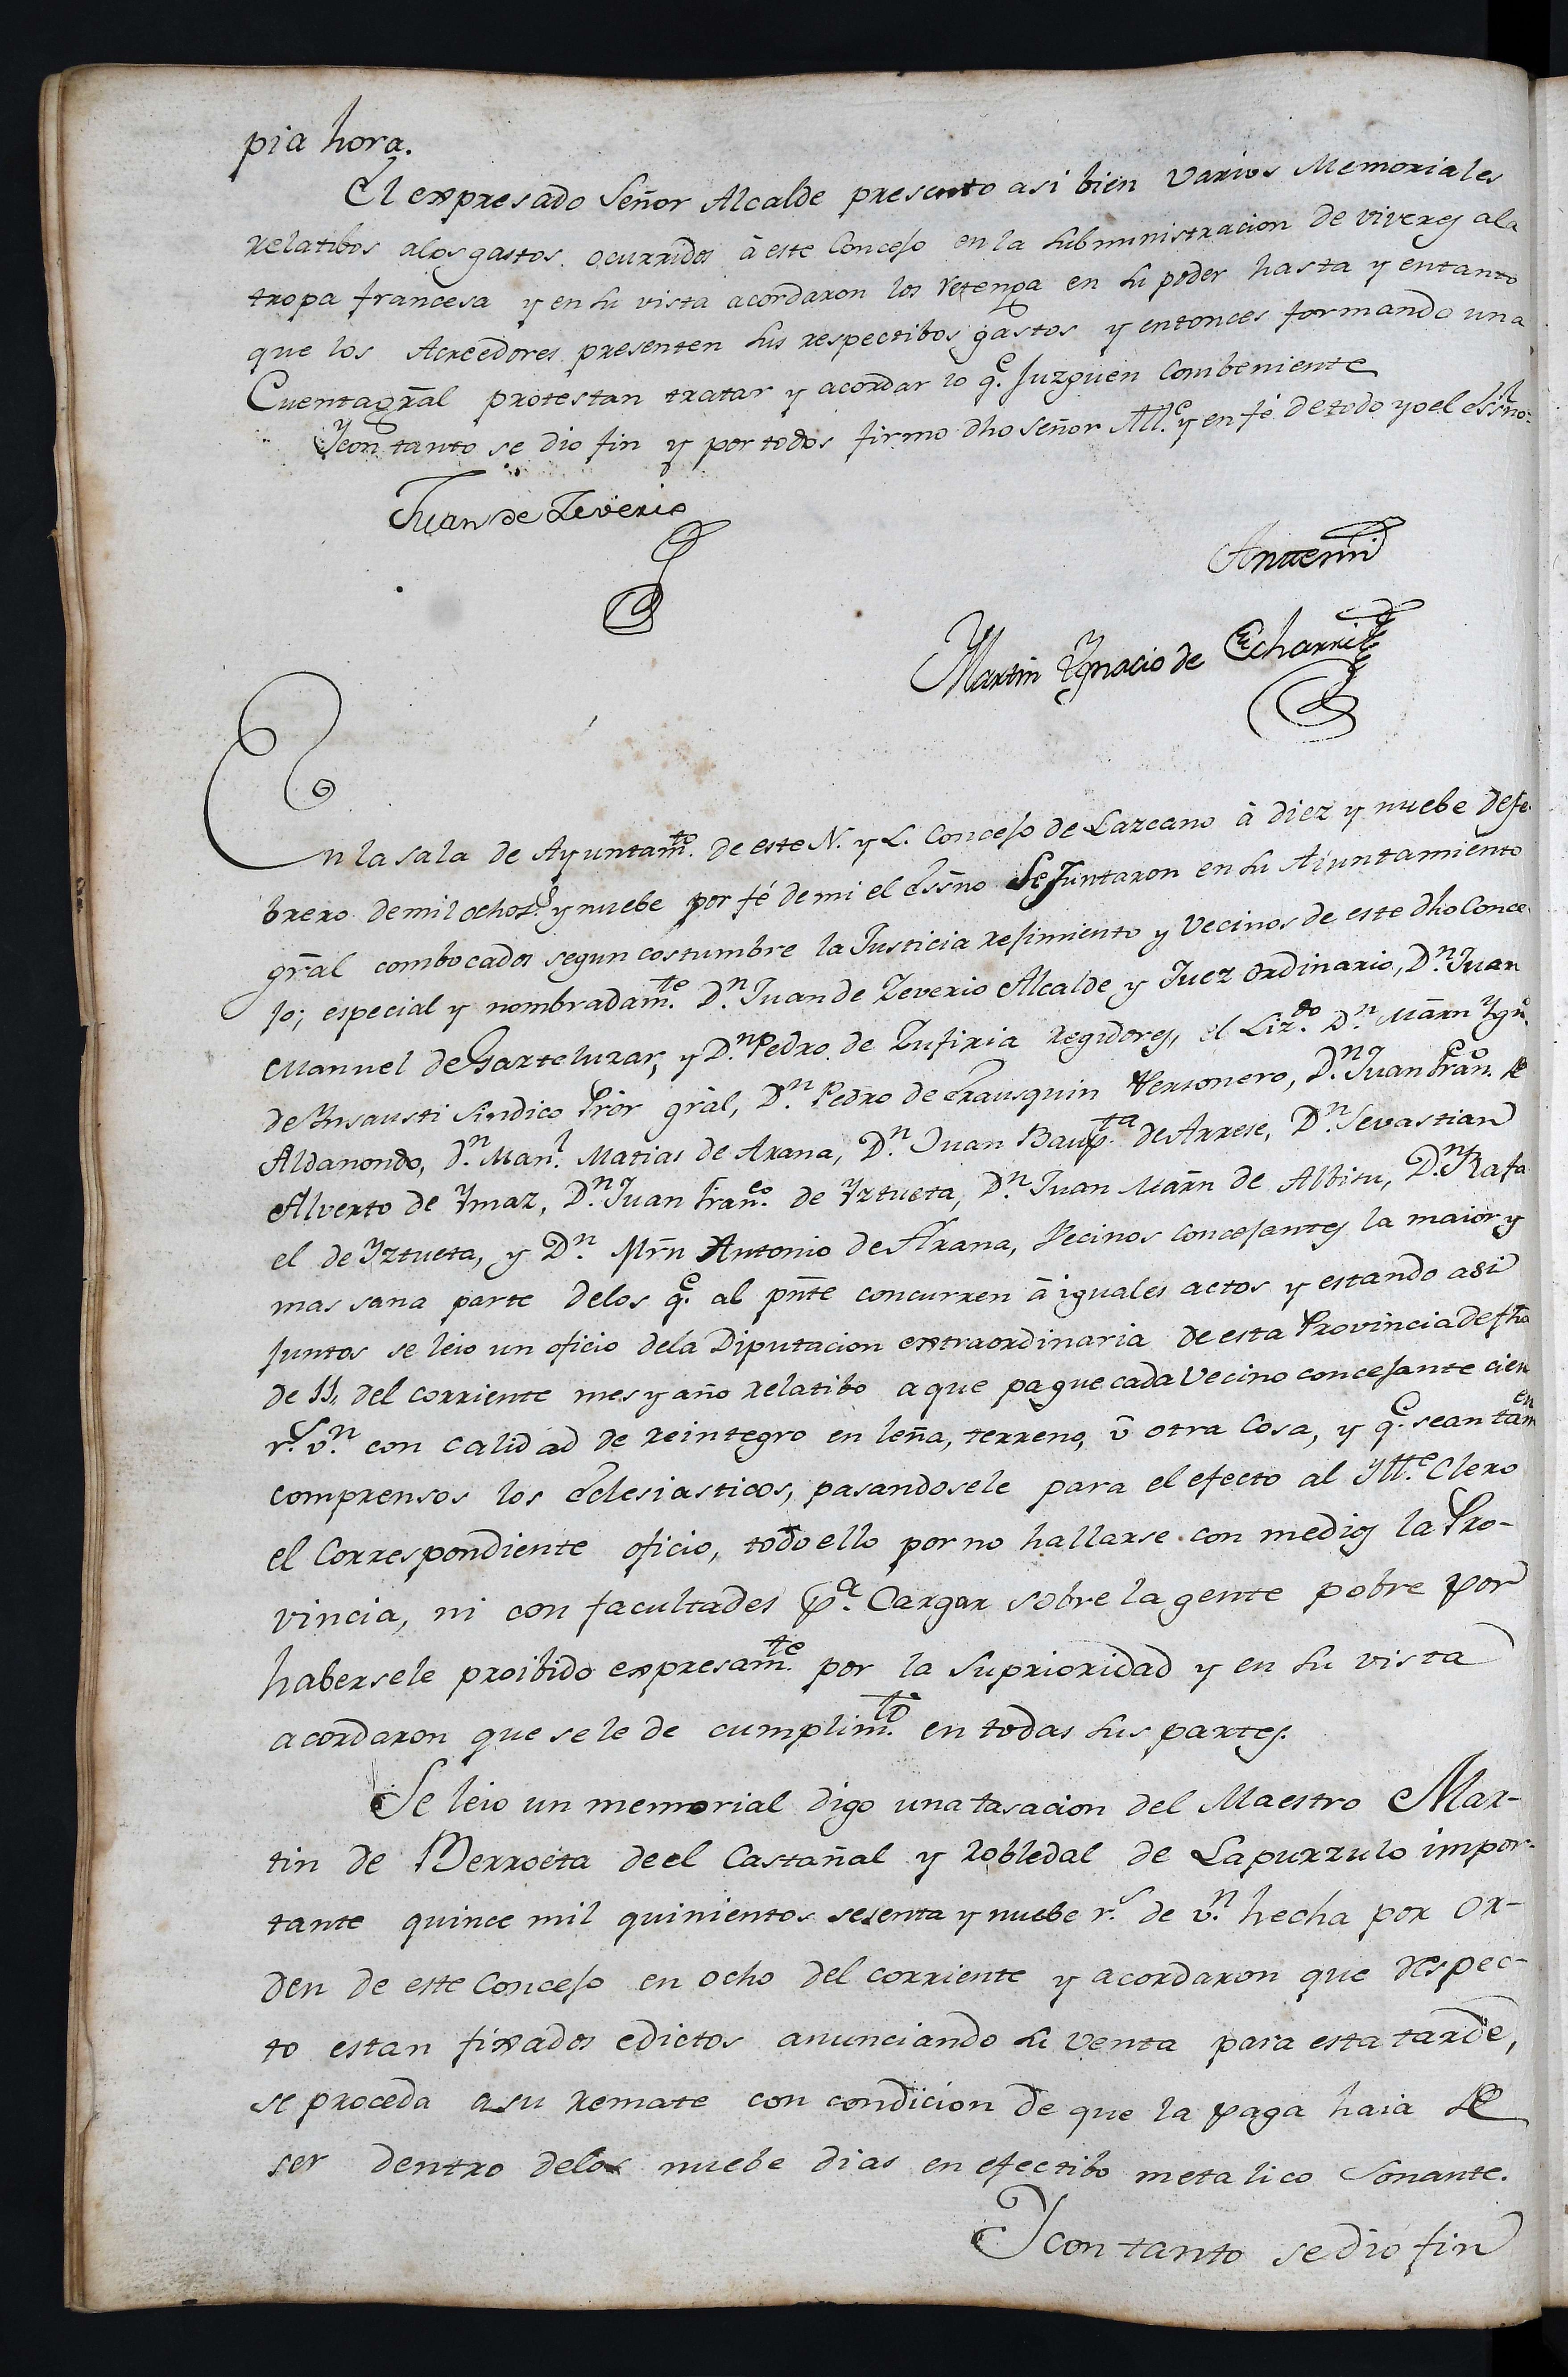 pia hora.
El expresado Señor Alcalde presento asi bien varios Memoriales
relatibos alos gastos ocurridos à este Concejo en la subministracion de viveres ala
tropa francesa y en su vista acordaron los retenga en su poder hasta y entanto
que los Acreedores presenten sus respectibos gastos y entonces formando una
Cuenta gr̃al protestan tratar y acordar lo q.e Juzguen combeniente
Y con tanto se dio fin y por todos firmo dho señor All.e y en fé de todo yo el ess.no
Juan de Zeverio
Antemi
Martin Ygnacio de Echarri
En la sala de Ayuntam.to de este N. y L. Concejo de Lazcano à diez y nuebe de fe-
brero de mil ochoz.s y nuebe por fé de mi el Essno Se Juntaron en su Aiuntamiento
gr̃al combocados segun costumbre la Justicia rejimiento y Vecinos de este dho Conce-
jo; especial y nombradam.te D.n Juan de Zeverio Alcalde y Juez ordinario, D.n Juan
Manuel de Garteluzar, y D.n Pedro de Zufiria regidores, el Liz.do D.n Mãrn Ygn.o
de Ynsausti sindico Prõr grãl, D.n Pedro de Erausquin Versonero, D.n Juan Fran.co de
Aldanondo, D.n Man.l Matias de Arana, D.n Juan Baup.ta de Arrese, D.n Sevastian
Alverto de Ymaz, D.n Juan Fran.co de Yztueta, D.n Juan Mãrn de Albisu, D.n Rafa
el de Yztueta, y D.n Mr̃n Antonio de Arana, Vecinos concejantes la maior y
mas sana parte delos q.e al pñte concurren à iguales actos y estando asi
Juntos se leio un oficio dela Diputacion extraordinaria de esta Provincia de fha
de 11, del corriente mes y año relatibo a que pague cada Vecino concejante cien
r.s v.n con calidad de reintegro en leña, terreno, ù otra cosa, y q.e sean tam en
comprensos los Eclesiasticos, pasandosele para el efecto al Yll.e Clero
el Correspondiente oficio, todo ello por no hallarse con medios la Pro-
vincia, ni con facultades p.a Cargar sobre la gente pobre por
habersele proibido expresam.te por la suprioridad y en su vista
acordaron que se le de cumplim.to en todas sus partes.
Se leio un memorial digo una tasacion del Maestro Mar-
tin de Berroeta de el Castañal y Robledal de Lapurzulo impor-
tante quince mil quinientos sesenta y nuebe r.s de v.n hecha por or-
den de este Concejo en ocho del corriente y acordaron que respec-
to estan fixados edictos anunciando su venta para esta tarde,
se proceda a su remate con condicion de que la paga haia de
ser dentro delos nuebe dias en efectibo metalico sonante.
Y con tanto se dio fin